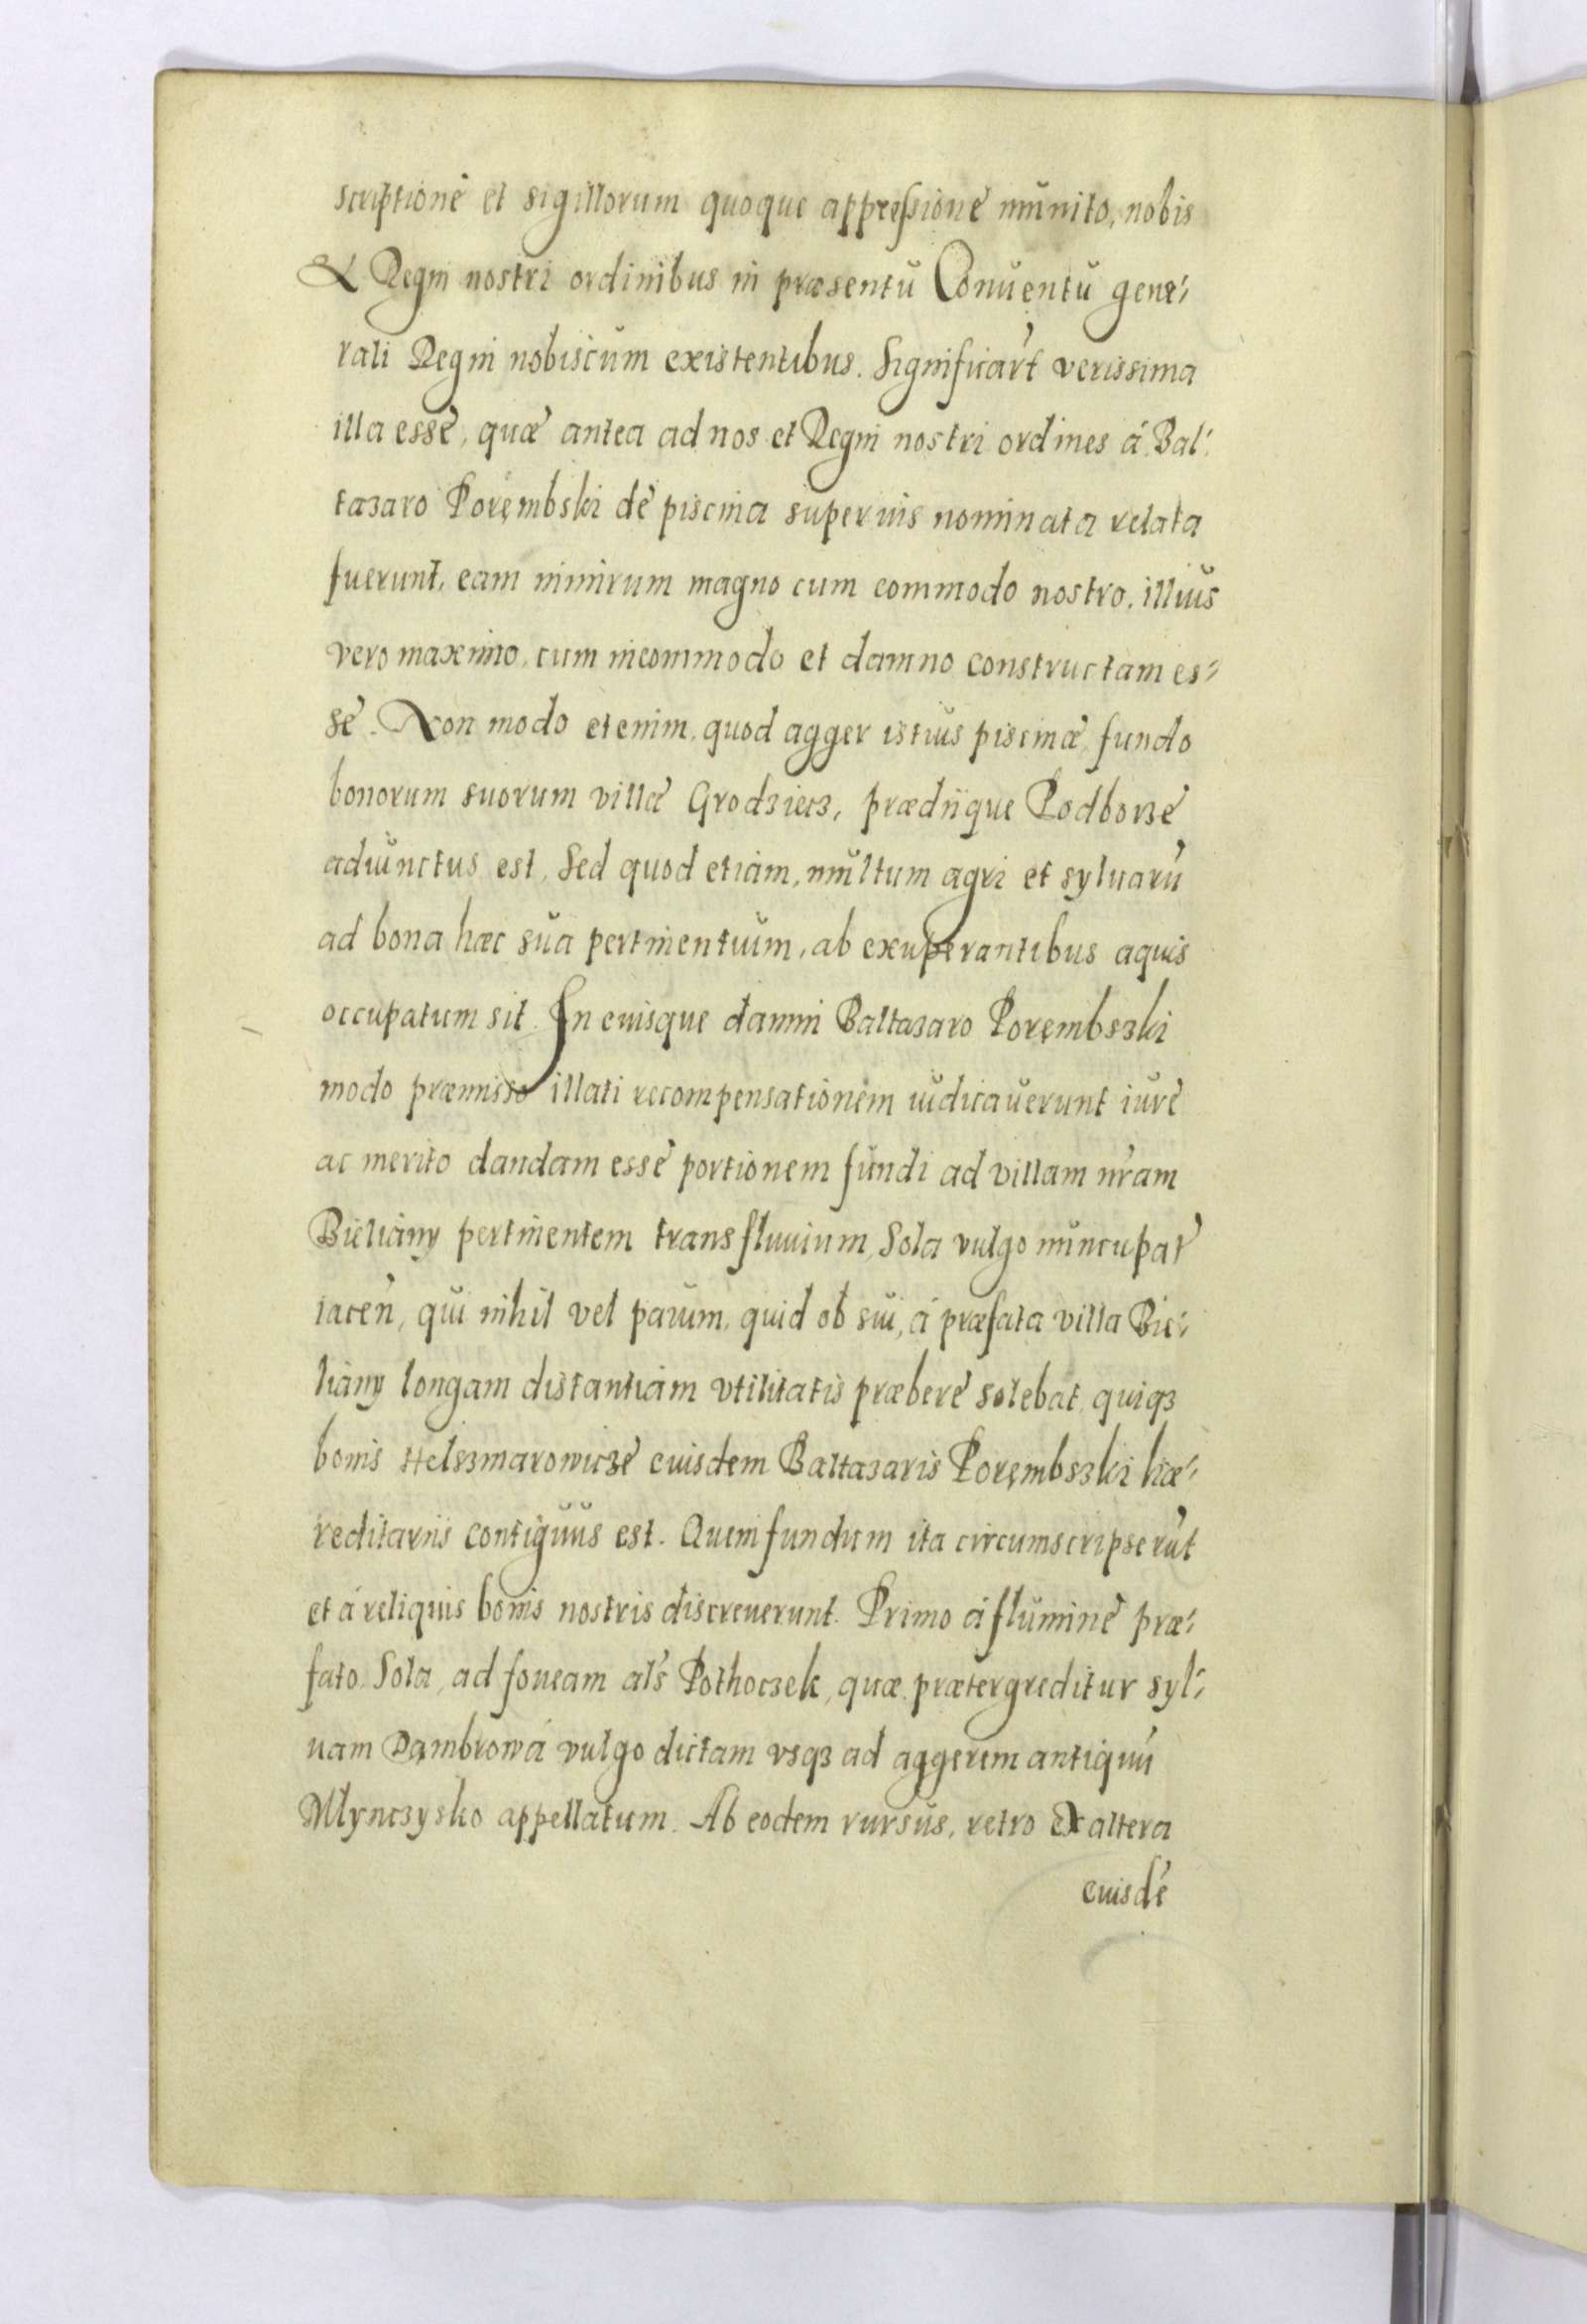 scriptione et sigillorum quoque appressione munito, nobis
& Regni nostri ordinibus in præsentū Conuentū gene-
rali Regni nobiscum existentibus. Significart verissima
illa esse, quæ antea ad nos et Regni nostri ordines á Bal-
tazaro Porębski de piscina superius nominata relata
fuerunt, eam nimirum magno cum commodo nostro, illius
vero maximo, cum incommodo et damno constructam es-
se. Non modo etenim, quod agger istius piscinæ fundo
bonorum suorum villæ Grodziecz, prædiique Podborze
adiunctus est, Sed quod etiam, multum agri et syluarū
ad bona hæc sua pertinentium, ab exuperantibus aquis
occupatum sit. In cuisque damni Baltazaro Poręmbszki
modo præmisso illati recompensationem iudicauerunt iure
ac merito dandam esse portionem fundi ad villam nr̄am
Bieliany pertinentem trans fluuium, Sola vulgo nuncupat̄
iaceñ, qui nihil vel parum, quid ob sui, á præfata villa Bie-
liany longam distantiam vtilitatis præbere solebat, quiqз
bonis Helszmarowicze euisdem Baltazaris Poręmbszki hæ-
reditariis contiguus est. Quem fundum ita circumscripserūt
et á reliquis bonis nostris discreuerunt. Primo á flumine præ-
fato Sola, ad foueam al's Pothoczek, quæ prætergreditur syl-
uam Dąmbrowá vulgo dictam vsqз ad aggerem antiquū
Młynczysko appellatum. Ab eodem rursus, retro ex altera
euisdē